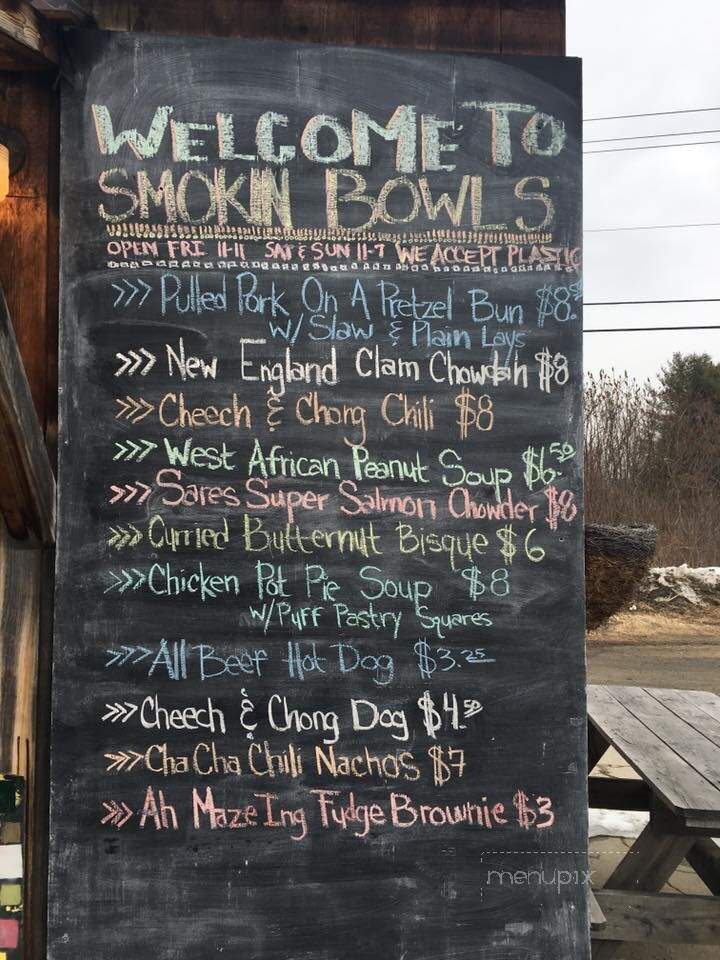 WELCOME TO
SMOKIN BOWLS
OPEN FRI 11-11 SAT & SUN 11-7 WE ACCEPT PLASTIC
>>> Pulled Pork On A Pretzel Bun $8.50
w/ Slaw & Plain Lays
>>> New England Clam Chowdah $8
>>> Cheech & Chong Chili $8
>>> West African Peanut Soup $6.50
>>> Sares Super Salmon Chowder $8
>>> Curried Butternut Bisque $6
>>> Chicken Pot Pie Soup $8
w/ Puff Pastry Squares
>>> All Beef Hot Dog $3.25
>>> Cheech & Chong Dog $4.50
>>> Cha Cha Chili Nachos $7
>>> Ah Maze Ing Fudge Brownie $3
menupix